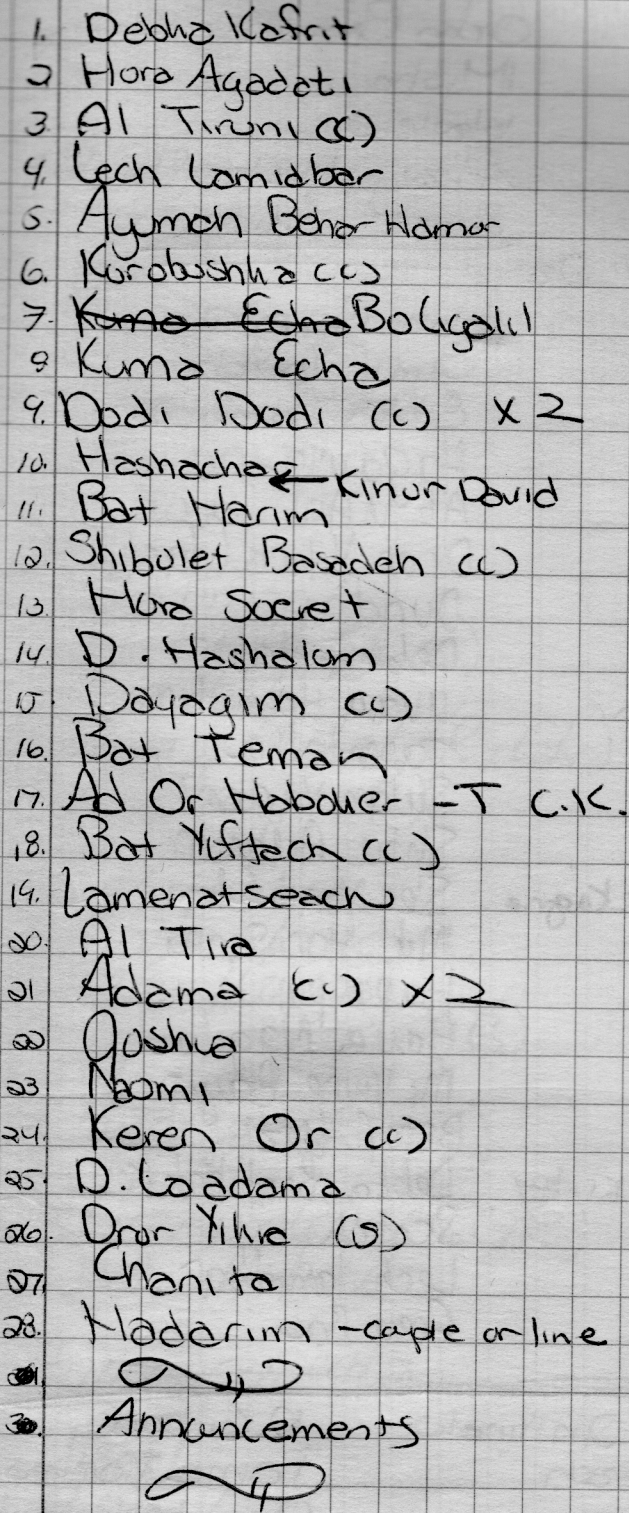 1. Debka Kafrit
2 Hora Agadati
3 Al Tiruni (C)
4. Lech Lamidbar
5. Ayumah Behar Hamor
6. Korobushka (C)
7. Kuma Echa Bo Ligalil
8 Kuma Echa
9. Dodi Dodi (C) x 2
10. Hashachar
← Kinor David
11. Bat Harim
12. Shibolet Basadeh (C)
13. Hora Socret
14. D. Hashalom
15. Dayagim (C)
16. Bat Teman
17. Ad Or Haboker - T C.K.
18. Bat Yiftach (C)
19. Lamenatseach
20. Al Tira
21 Adama (C) x 2
22 Joshua
23 Naomi
24. Keren Or (C)
25. D. Loadama
26. Dror Yikre (S)
27 Chanita
28. Hadarim - couple or line
30. Announcements